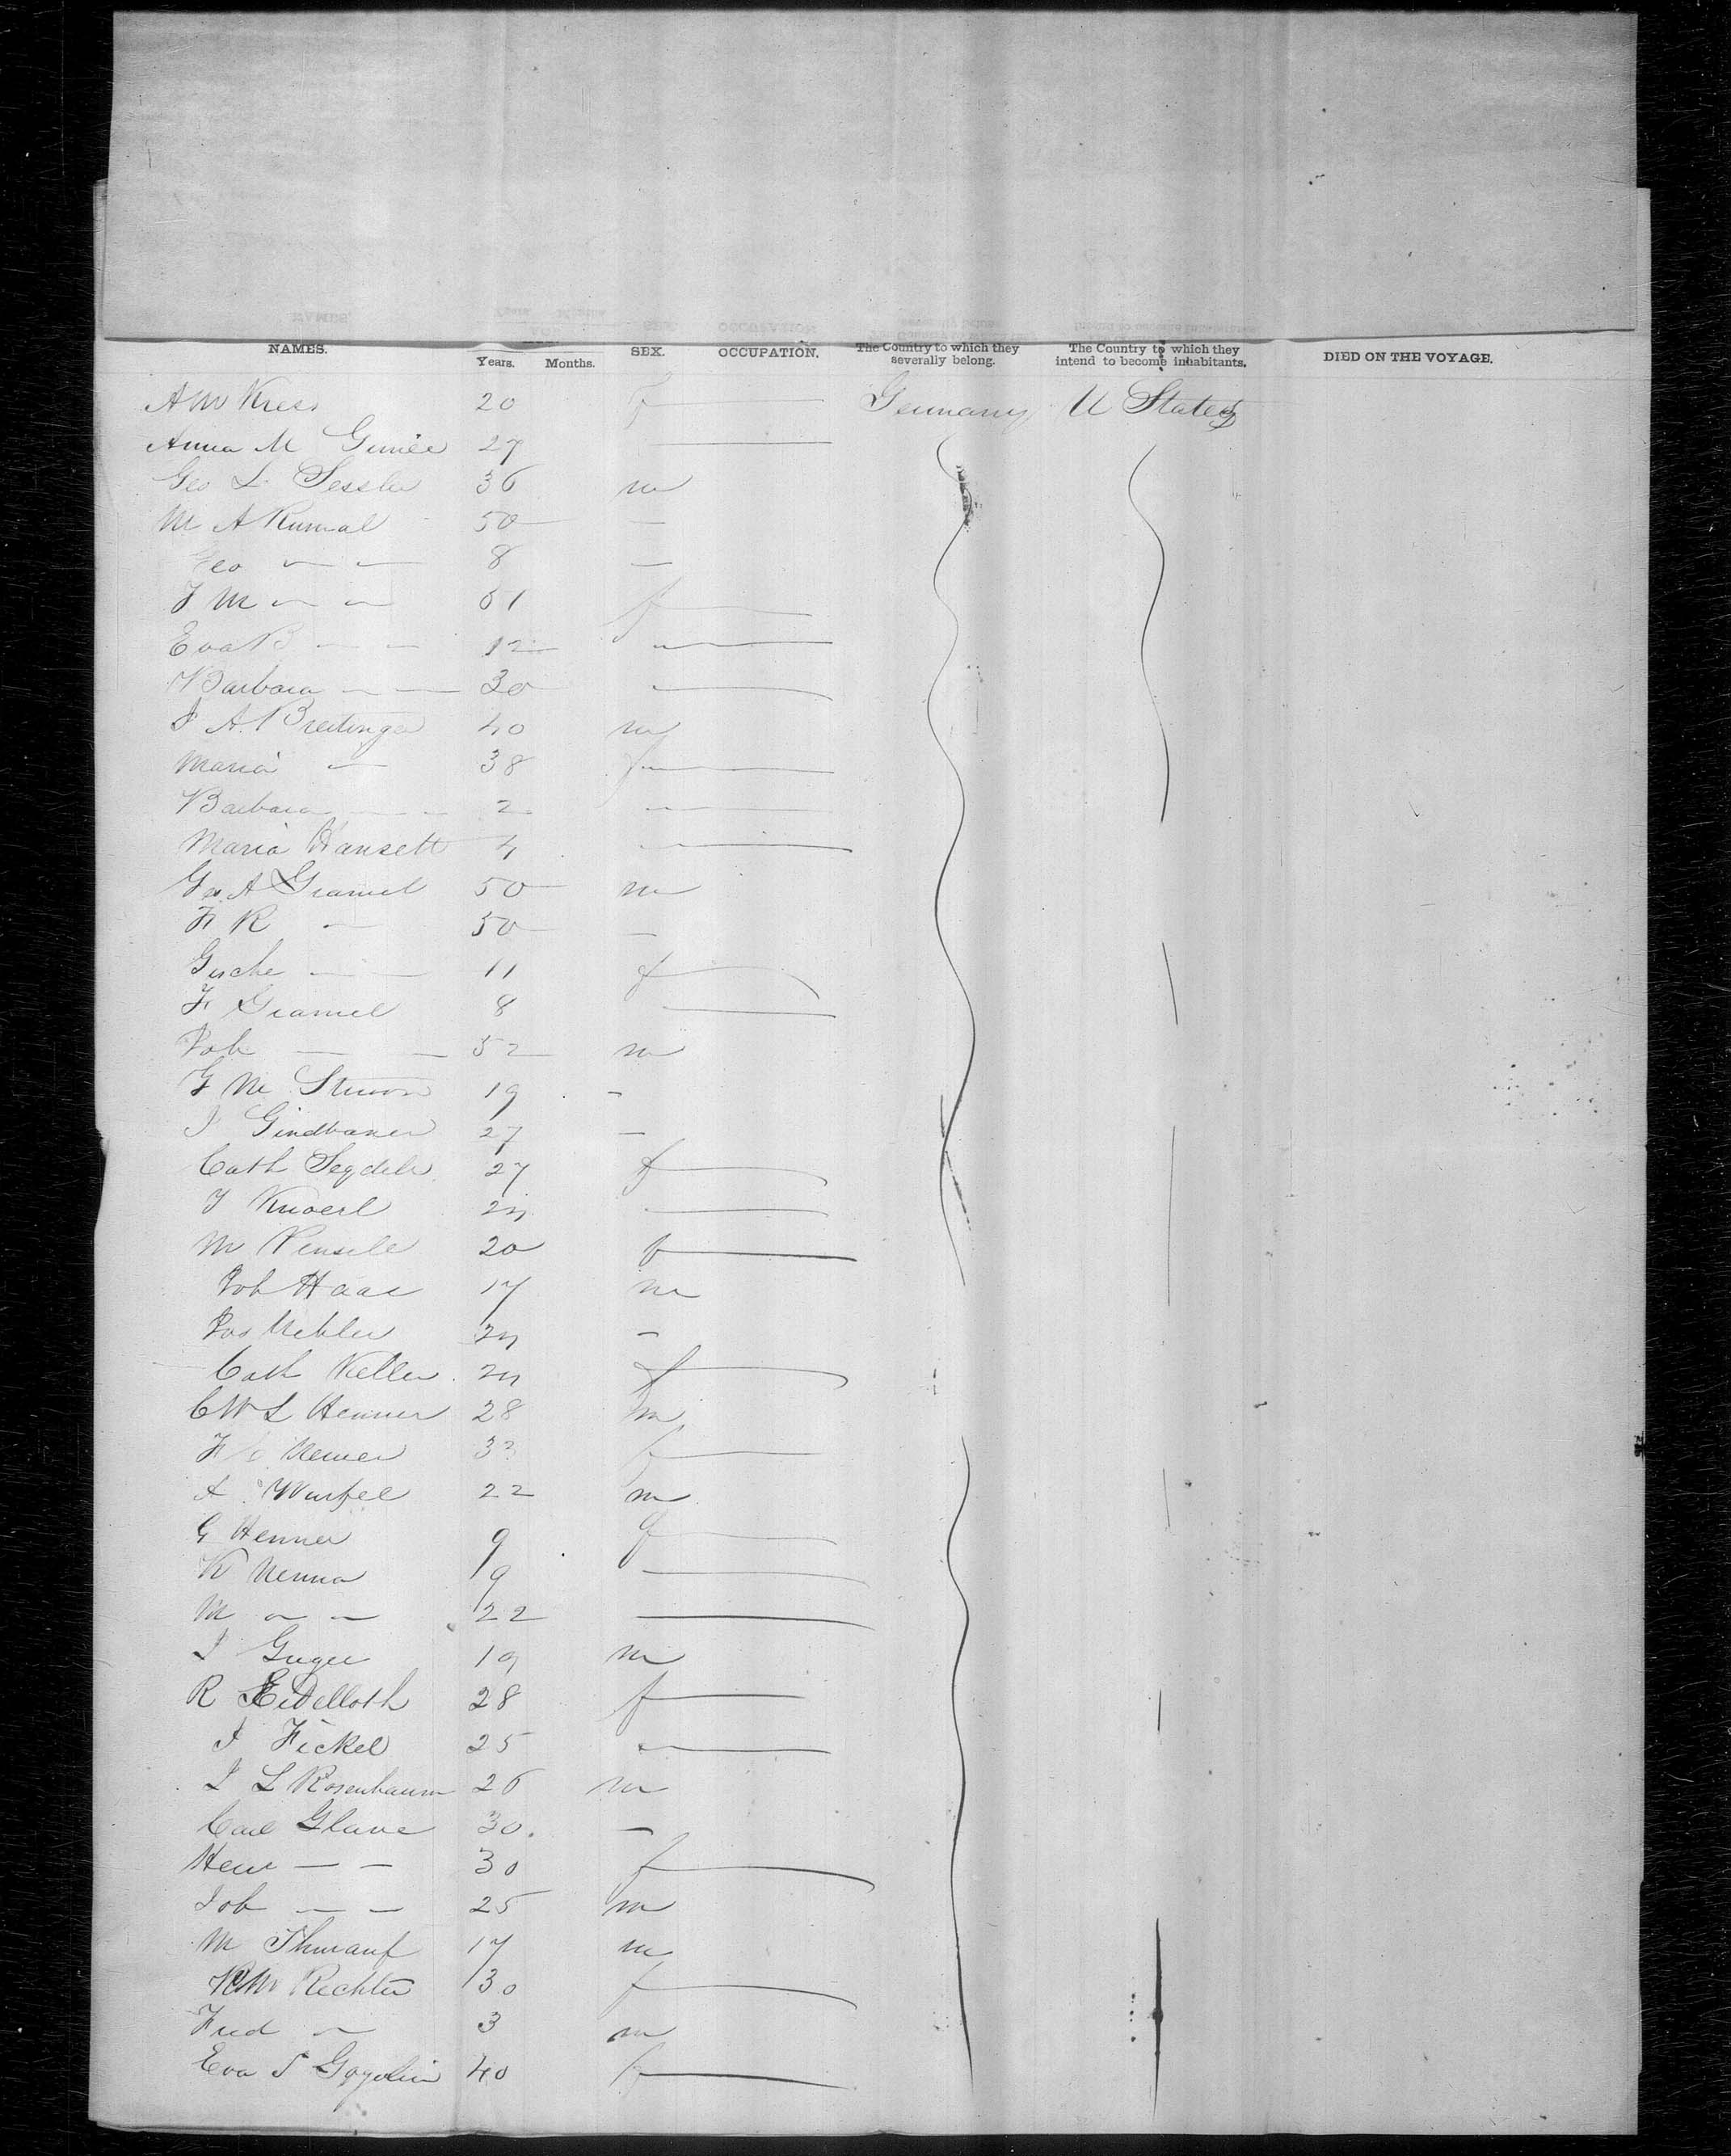 NAMES. Years. Months. SEX. OCCUPATION. The Country to which they severally belong. The Country to which they intend to become inhabitants. DIED ON THE VOYAGE.
A M Kress 20 f — Germany U States
Anna M 27 —
Geo L Sessler 36 m
M A Kumal 50 —
Geo — — 8 —
J M — — 61 f —
Eva B — — 12 —
Barbara — — 30 —
J A. Breitinger 40 m
Maria — 38 f —
Barbara — — 2 —
Maria Hansett 4 —
Geo. A Gramel 50 m
F R — 50 —
11 f —
F Gramel 8 —
Joh — — 52 m
G M 19 -
J Gindbauer 27 —
Cath 27 f —
J Knoerl 24 —
M 20 f —
Joh Haas 17 m
Jos 24 -
Cath Keller 24 f —
C W L Henner 28 m
F 33 f —
A Wurfel 22 m
G Henner 9 f —
K 19 —
M — — 22 —
J 19 m
R Eidelloth 28 f —
J Fickel 25 —
J L Rosenbaum 26 m
Carl Glave 30. —
Henr — — 30 f —
Joh — — 25 m
M 17 m
R M Rechter 30 f —
Fred — 3 m
Eva S 40 f —